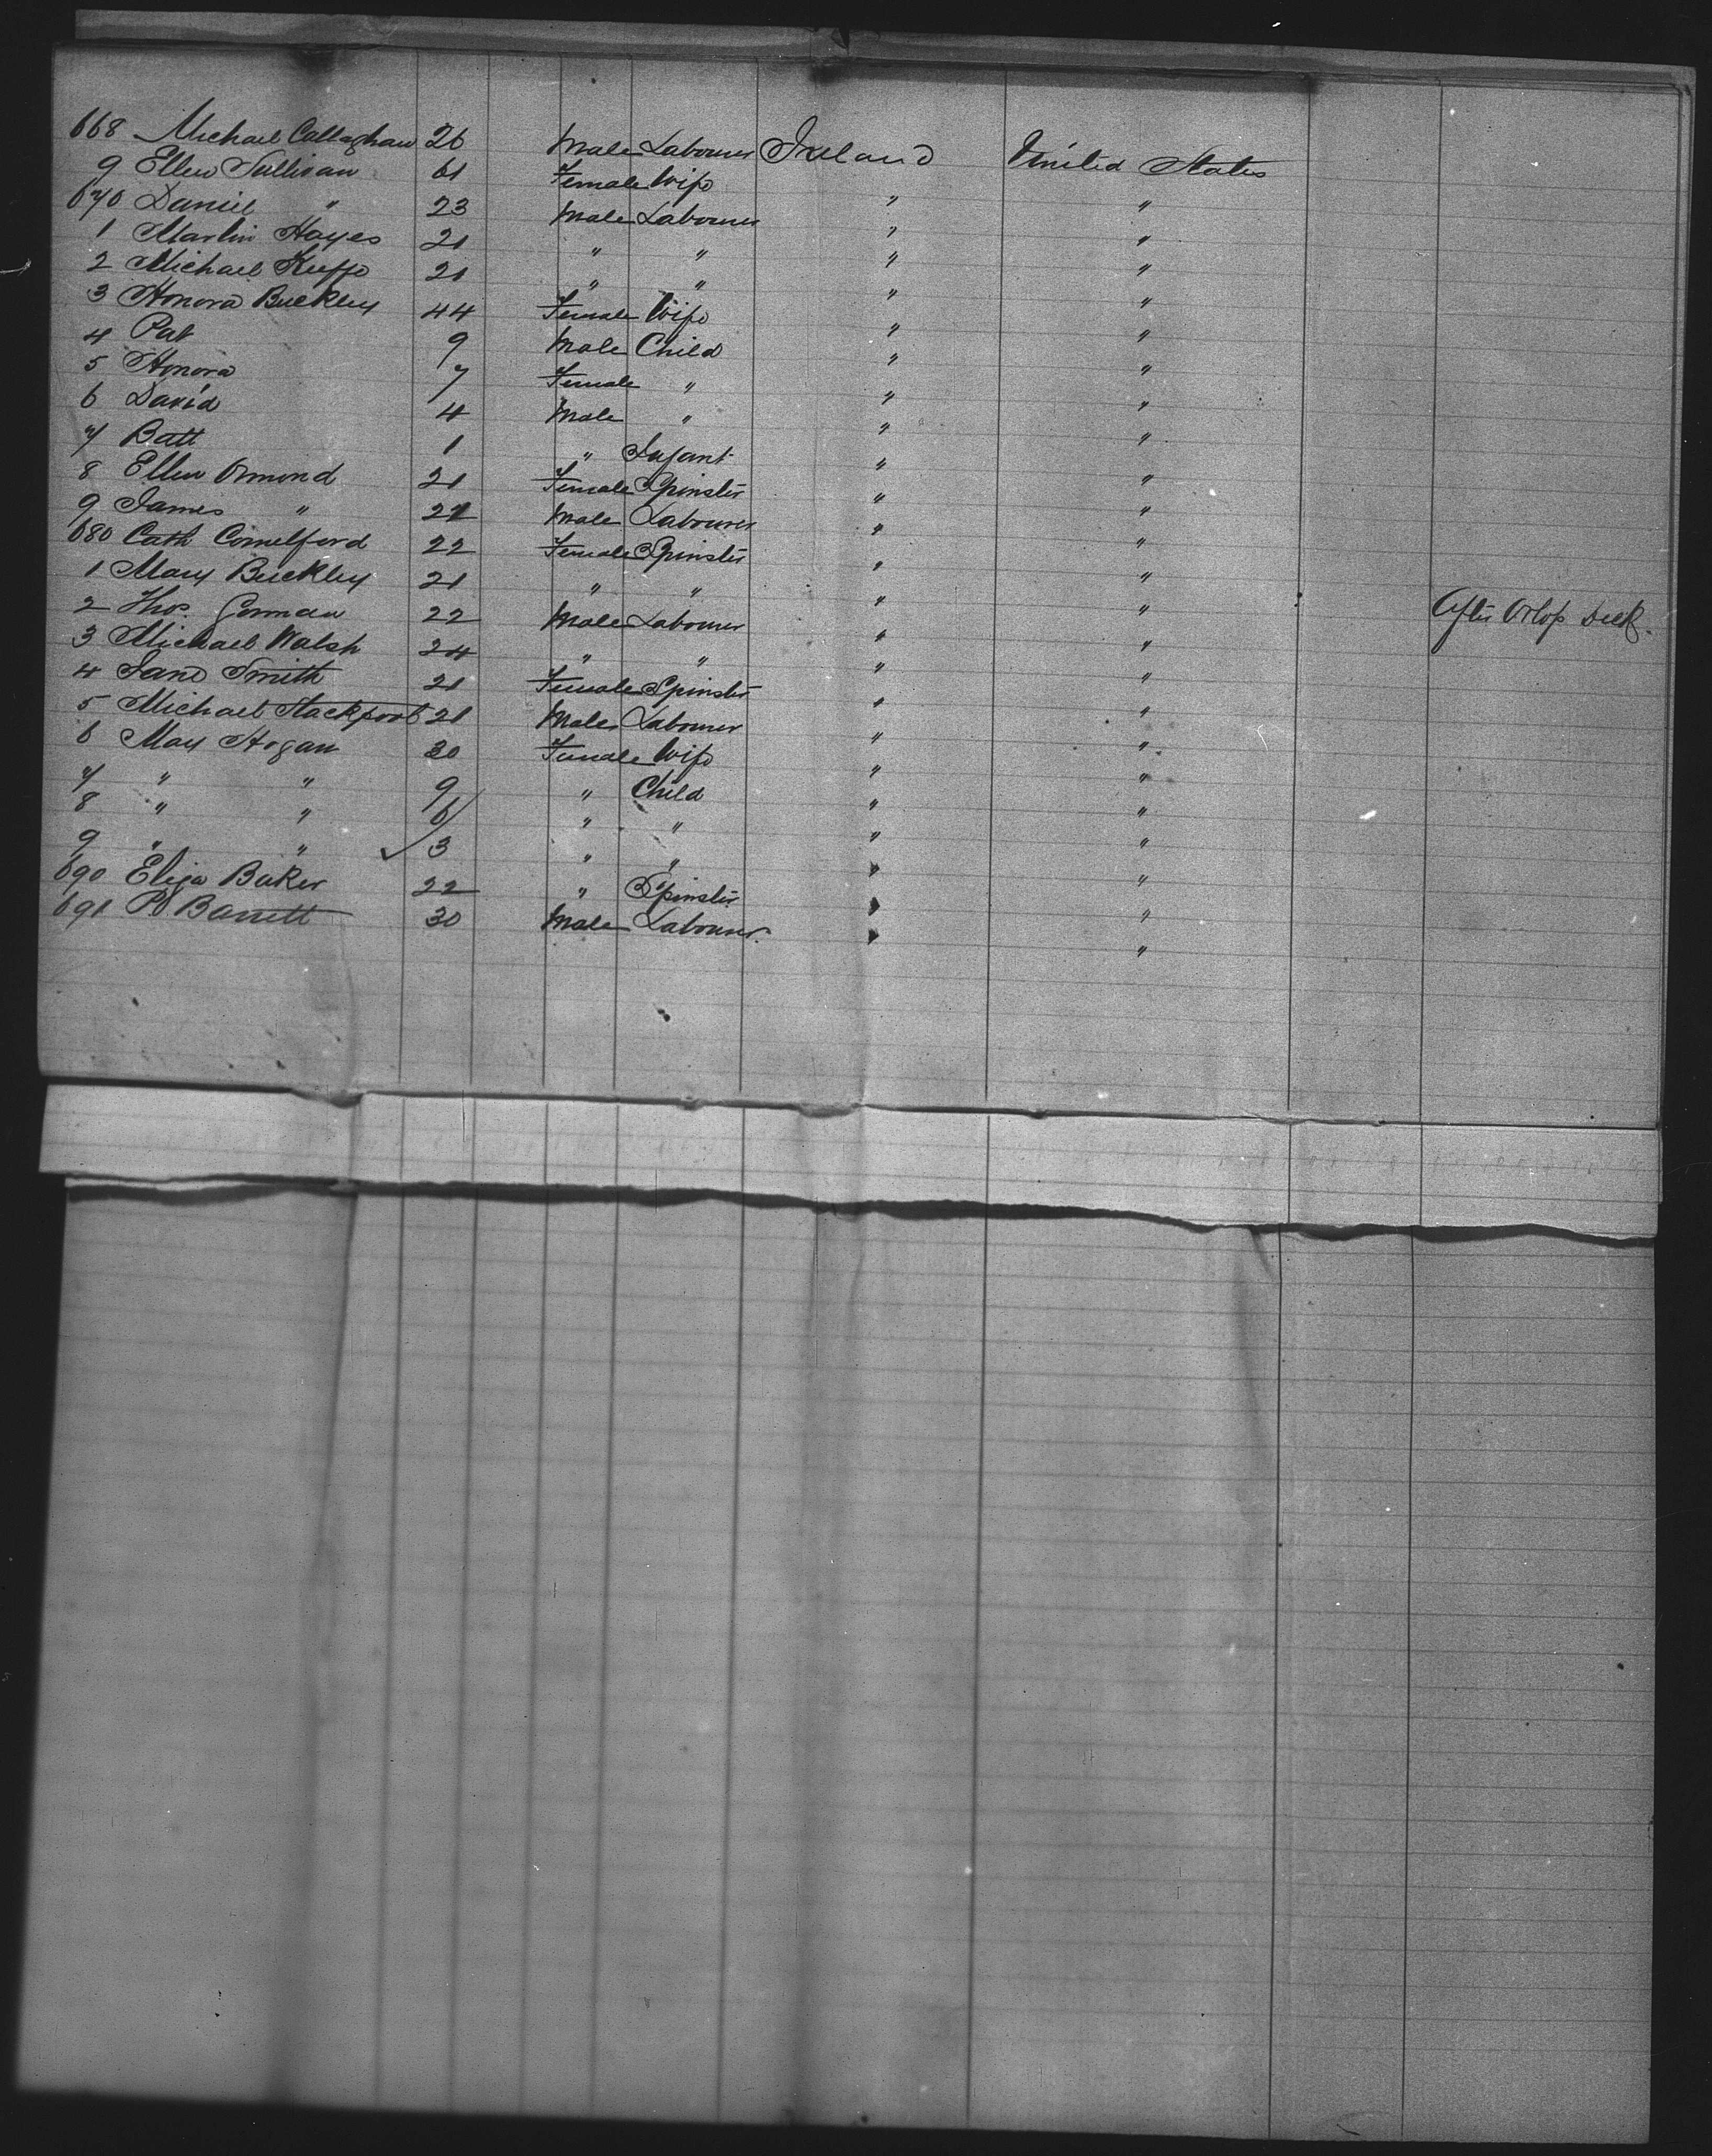 668 Michael Callaghan 26 Male Labourer Ireland United States
9 Ellen Sullivan 61 Female Wife " "
670 Daniel " 23 Male Labourer " "
1 Martin Hayes 21 " " " "
2 Michael Keeffe 21 " " " "
3 Honora Buckley 44 Female Wife " "
4 Pat 9 Male Child " "
5 Honora 7 Female " " "
6 David 4 Male " " "
7 Batt 1 " Infant " "
8 Ellen Ormond 21 Female Spinster " "
9 James " 22 Male Labourer " "
680 Cath Comelford 22 Female Spinster " "
1 Mary Buckley 21 " " " "
2 Thos Gorman 22 Male Labourer " " After Orlop Deck.
3 Michael Walsh 24 " " " "
4 Jane Smith 21 Female Spinster " "
5 Michael Stackpoot 21 Male Labourer " "
6 Mary Hogan 30 Female Wife " "
7 " " 9 " Child " "
8 " " 6 " " " "
9 " " 3 " " " "
690 Eliza Baker 22 " Spinster " "
691 P Barrett 30 Male Labourer. " "